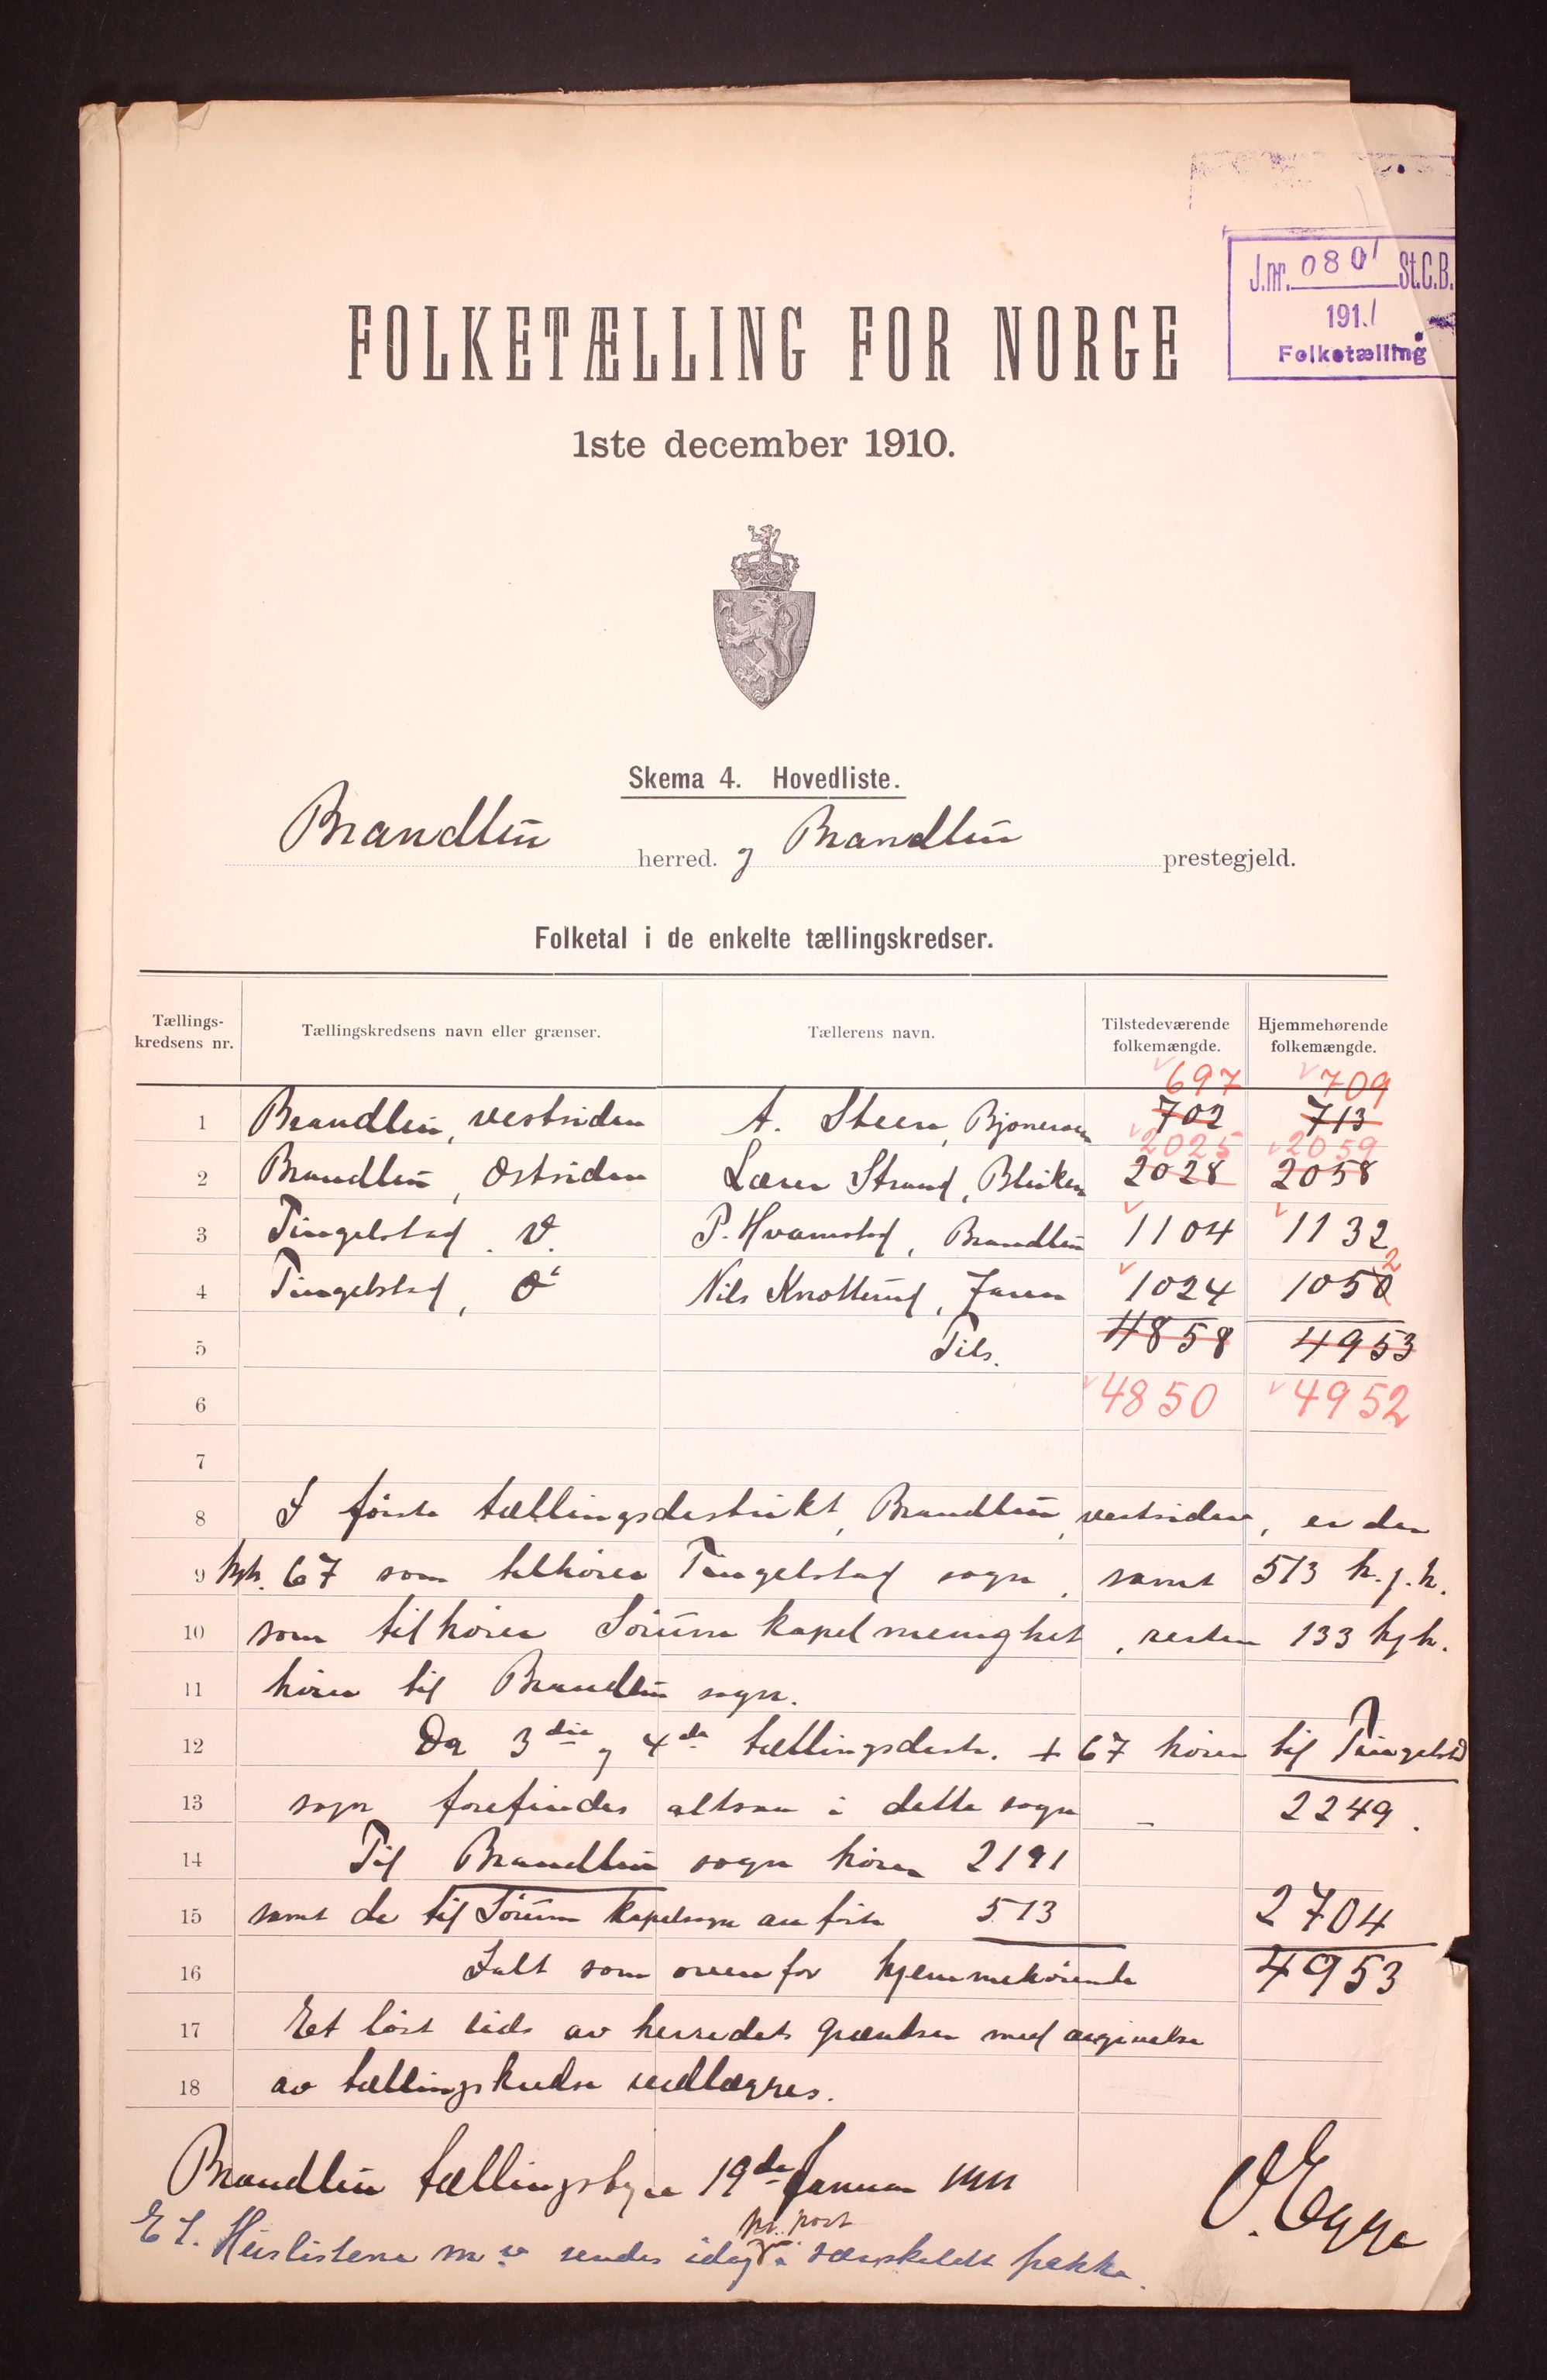 J.nr. 080 St.C.B.
1911
Folketælling
FOLKETÆLLING FOR NORGE
1ste december 1910.
Skema 4. Hovedliste.
Brandbu herred. og Brandbu prestegjeld.
Folketal i de enkelte tællingskredser.
Tællings-kredsens nr. Tællingskredsens navn eller grænser. Tællerens navn. Tilstedeværende folkemængde. Hjemmehørende folkemængde.
697 709
1 Brandbu, vestsiden A. Steen, Bjoneroen 702 713
2025 2059
2 Brandbu, østsiden Lærer Strand, Bleiken 2028 2058
3 Tingelstad V. P. Hvamstad, Brandbu 1104 1132
2
4 Tingelstad, Ø Nils Knotterud, Jaren 1024 1050
5 Tils. 4858 4953
6 4850 4952
7
8 I første tællingsdistrikt, Brandbu, vestsiden, er der
9 hjh. 67 som tilhører Tingelstad sogn, samt 513 h.j.h.
10 som tilhører Sørum kapelmenighet, resten 133 hjh.
11 hører til Brandbu sogn.
12 Da 3die og 4de tællingsdistr. + 67 hører til Tingelstad
13 sogn forefindes altsaa i dette sogn – 2249.
14 Til Brandbu sogn hører 2191
15 samt de til Sørum kapelsogn anførte 513 2704
16 Ialt som ovenfor hjemmehørende 4953
17 Et løst rids av herredets grænser med angivelse
18 av tællingskredse vedlægges.
Brandbu tællingsstyre 19de Januar 1911
O. Egge
pr. post
E S. Huslistene m v sendes idag i særskilt pakke.